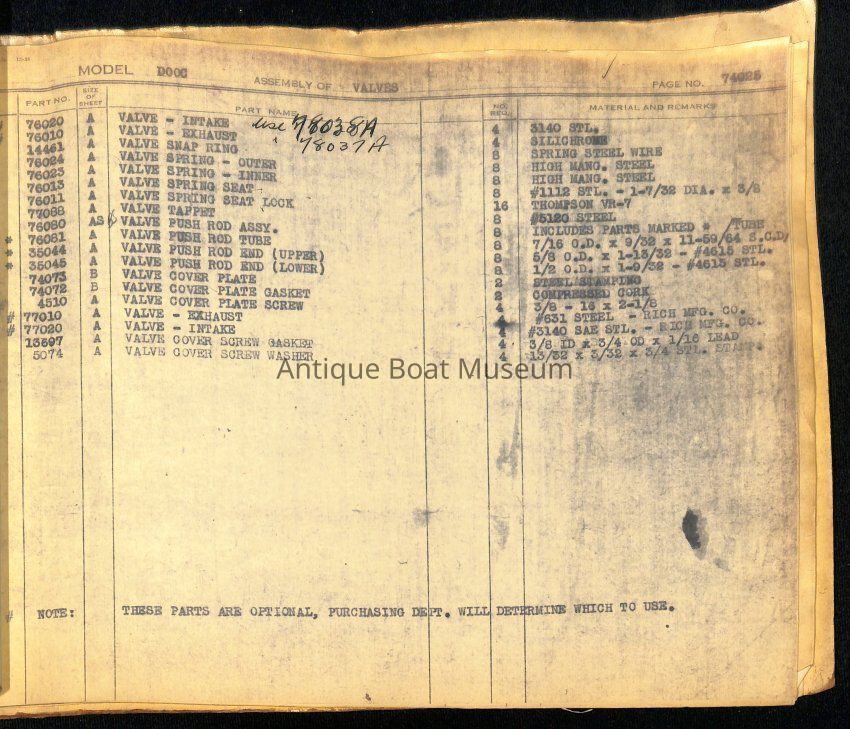 12-36
MODEL DOOC ASSEMBLY OF VALVES PAGE NO. 74025
PART NO. SIZE OF SHEET PART NAME NO. REQ. MATERIAL AND REMARKS
# 76020 A VALVE - INTAKE use 78038A 4 3140 STL.
# 76010 A VALVE - EXHAUST 78037A 4 SILICHROME
14461 A VALVE SNAP RING 8 SPRING STEEL WIRE
76024 A VALVE SPRING - OUTER 8 HIGH MANG. STEEL
76023 A VALVE SPRING - INNER 8 HIGH MANG. STEEL
76013 A VALVE SPRING SEAT 8 #1112 STL. - 1-7/32 DIA. x 3/8
76011 A VALVE SPRING SEAT LOCK 16 THOMPSON VR-7
77088 A VALVE TAPPET 8 #5120 STEEL
76080 AS VALVE PUSH ROD ASSY. 8 INCLUDES PARTS MARKED * /TUBE
* 76081 A VALVE PUSH ROD TUBE 8 7/16 O.D. x 9/32 x 11-59/64 S.C.D/
* 35044 A VALVE PUSH ROD END (UPPER) 8 5/8 O.D. x 1-13/32 - #4615 STL.
* 35045 A VALVE PUSH ROD END (LOWER) 8 1/2 O.D. x 1-9/32 - #4615 STL.
74073 B VALVE COVER PLATE 2 STEEL STAMPING
74072 B VALVE COVER PLATE GASKET 2 COMPRESSED CORK
4510 A VALVE COVER PLATE SCREW 4 3/8 - 16 x 2-1/8
# 77010 A VALVE - EXHAUST 4 #631 STEEL - RICH MFG. CO.
# 77020 A VALVE - INTAKE 4 #3140 SAE STL. - RICH MFG. CO.
13697 A VALVE COVER SCREW GASKET 4 3/8 ID x 3/4 OD x 1/16 LEAD
5074 A VALVE COVER SCREW WASHER 4 13/32 x 3/32 x 3/4 STL. STAMP.
Antique Boat Museum
# NOTE: THESE PARTS ARE OPTIONAL, PURCHASING DEPT. WILL DETERMINE WHICH TO USE.